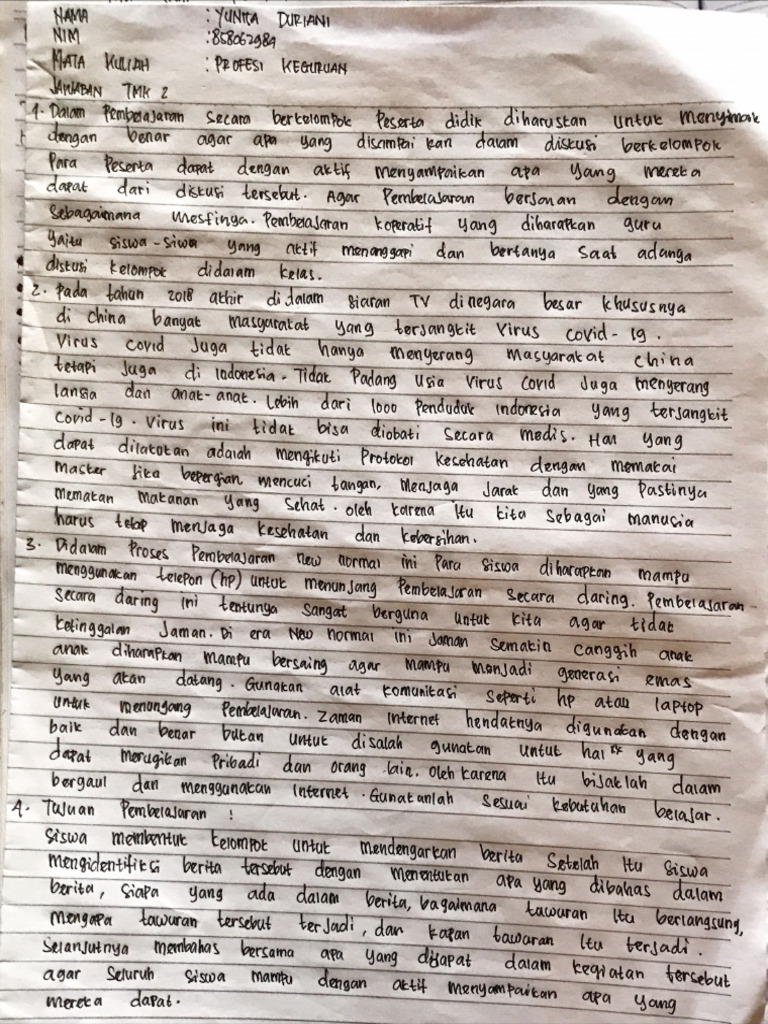 NAMA : YUNITA DURIANI
NIM : 858062989
MATA KULIAH : PROFESI KEGURUAN
JAWABAN TMK 2
1. Dalam Pembelajaran Secara berkelompok Peserta didik diharuskan untuk Menyimak
dengan benar agar apa yang disampaikan dalam diskusi berkelompok
Para Peserta dapat dengan aktif menyampaikan apa yang mereka
dapat dari diskusi tersebut. Agar Pembelajaran berjalan dengan
Sebagaimana mestinya. Pembelajaran koperatif yang diharapkan guru
yaitu siswa-siwa yang aktif menanggapi dan bertanya saat adanga
diskusi kelompok didalam kelas.
2. Pada tahun 2018 akhir didalam siaran TV dinegara besar khususnya
di china banyak masyarakat yang terjangkit Virus covid-19.
Virus covid Juga tidak hanya menyerang masyarakat china
tetapi Juga di Indonesia. Tidak Padang Usia Virus Covid Juga menyerang
lansia dan anak-anak. Lebih dari 1000 Penduduk Indonesia yang terjangkit
Covid-19. Virus ini tidak bisa diobati Secara medis. Hal yang
dapat dilakukan adalah mengikuti Protokol kesehatan dengan memakai
masker jika bepergian mencuci tangan, menjaga Jarak dan yang Pastinya
memakan makanan yang Sehat. oleh karena Itu kita sebagai manusia
harus tetap menjaga kesehatan dan kebersihan.
3. Didalam Proses Pembelajaran new normal ini Para siswa diharapkan mampu
menggunakan telepon (hp) untuk menunjang Pembelajaran secara daring. Pembelajaran
Secara daring Ini tentunya sangat berguna untuk kita agar tidak
ketinggalan Jaman. Di era New normal ini Jaman semakin canggih anak
anak diharapkan mampu bersaing agar mampu menjadi generasi emas
yang akan datang. Gunakan alat komunikasi seperti hp atau laptop
untuk menunjang Pembelajaran. Zaman Internet hendaknya digunakan dengan
baik dan benar bukan untuk disalah gunakan untuk hal yang
dapat merugikan Pribadi dan orang lain. Oleh karena Itu bijaklah dalam
bergaul dan menggunakan Internet. Gunakanlah Sesuai kebutuhan belajar.
4. Tujuan Pembelajaran :
Siswa membentuk kelompok untuk mendengarkan berita Setelah Itu Siswa
Mengidentifiksi berita tersebut dengan menentukan apa yang dibahas dalam
berita, Siapa yang ada dalam berita, bagaimana tawuran Itu berlangsung,
mengapa tawuran tersebut terjadi, dan kapan tawuran Itu terjadi.
Selanjutnya membahas bersama apa yang didapat dalam kegiatan tersebut
agar Seluruh Siswa mampu dengan aktif menyampaikan apa yang
mereka dapat.